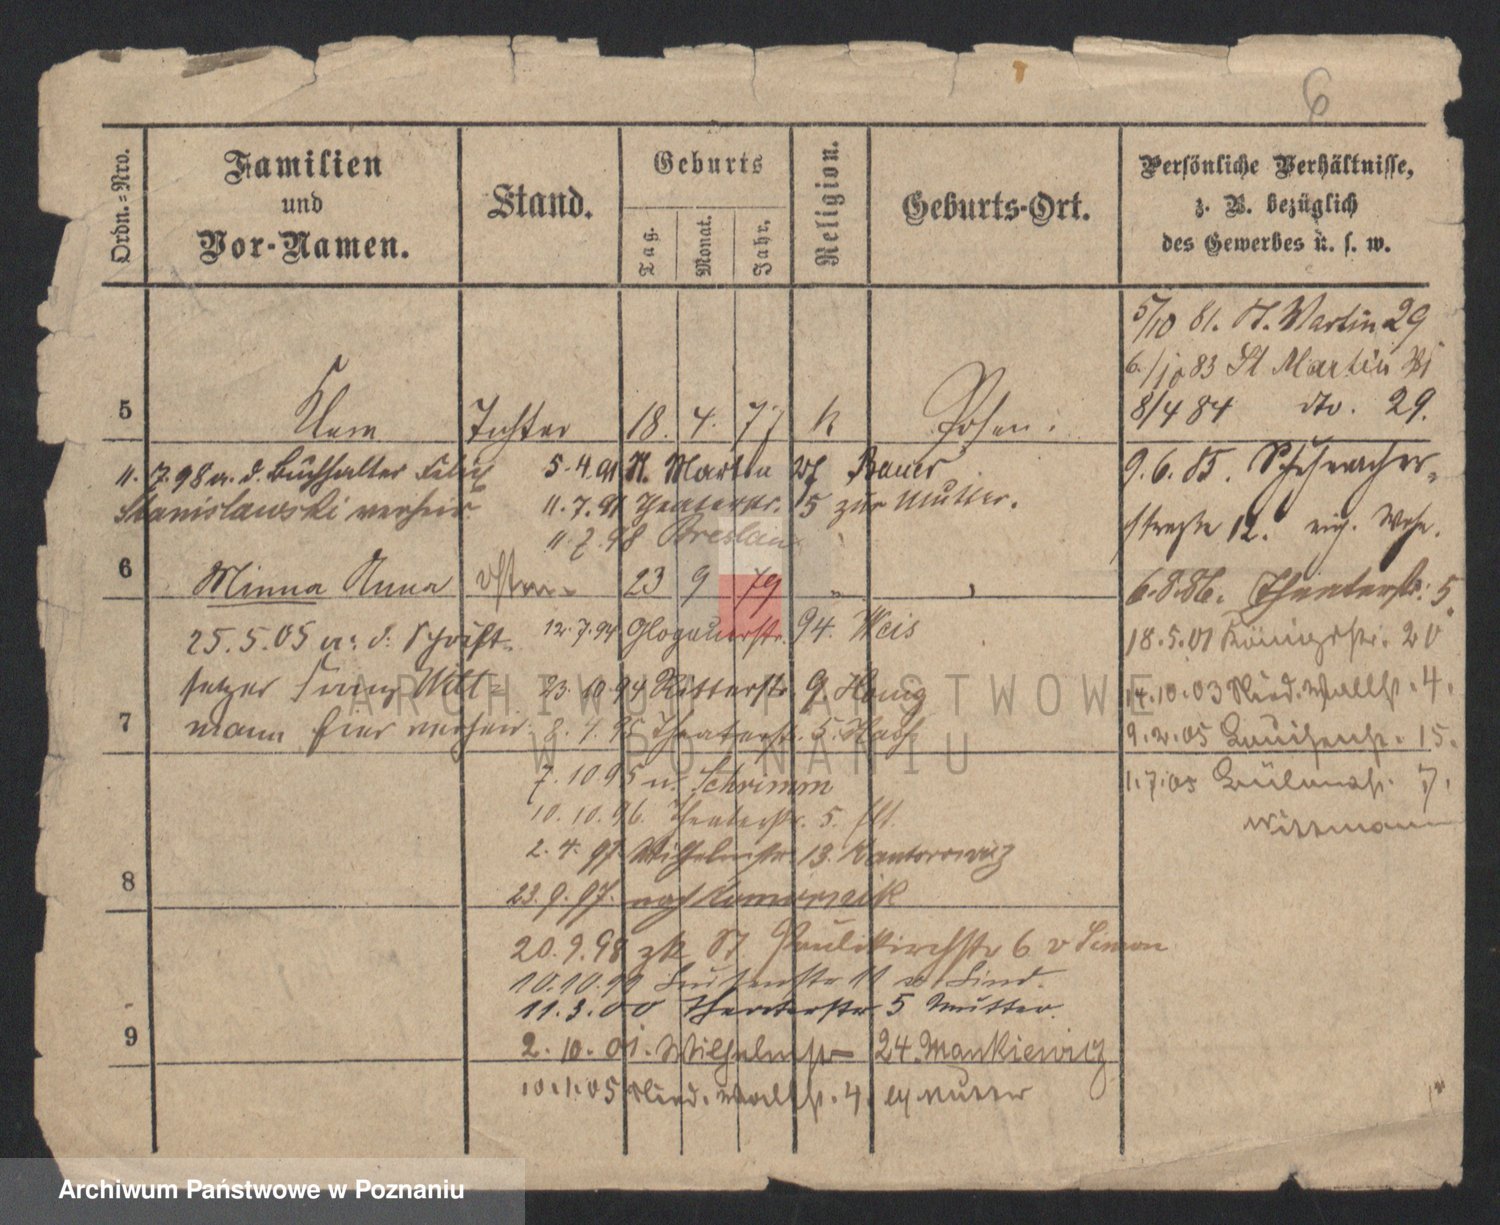 6
Ordn.-Nro.
Familien
und
Vor-Namen.
Stand.
Geburts
Tag.
Monat.
Jahr.
Religion.
Geburts-Ort.
Persönliche Verhältnisse,
z. B. bezüglich
des Gewerbes u. s. w.
5/10 81. St. Martin 29
6./10 83 St Martin
8/4 84 dto. 29.
5
Tochter 18. 4. 77 k Posen.
11. 7. 98 a. d. Buchhalter Felix
Stanislawski verheir.
5. 4. 91 St. Martin Bauer
11. 7. 91 Theaterstr. 5 zur Mutter.
11. 7. 98 Breslau
9. 6. 85. Schuhmacher-
straße 12. eig. Wohn.
6
Minna Anna 23 9 79 " "
6. 8. 86. Theaterstr. 5.
25. 5. 05 a. d. Schrift-
setzer Franz Witt-
mann hier verheir.
12. 7. 94 Glogauerstr. 94. Weis
23. 10. 94 Ritterstr. 9.
8. 4. 95 Theaterstr. 5.
18. 5. 01 Königstr. 20
14. 10. 03 Nied. Wallst. 4.
9. 2. 05 15.
7
7. 10 95 n. Schrimm
10. 10. 96. Theaterstr. 5.
2. 4. 97 Wilhelmstr. 13. Kantorowicz
23. 9. 97. nach
1. 7. 05 7.
Wittmann
8
20. 9. 98 zk St. Paulikirchstr 6 v Simon
10. 10. 99 11
11. 3. 00 Theaterstr 5 Mutter.
9
2. 10. 01. Wilhelmstr 24. Mankiewicz
10. 1. 05 Nied. Wallst. 4. Mutter
ARCHIWUM PAŃSTWOWE
W POZNANIU
Archiwum Państwowe w Poznaniu